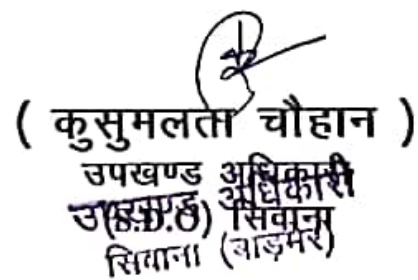 ( कुसुमलता चौहान )
उपखण्ड अधिकारी
उपखण्ड अधिकारी
(S.D.O) सिवाना
सिवाना (बाड़मेर)